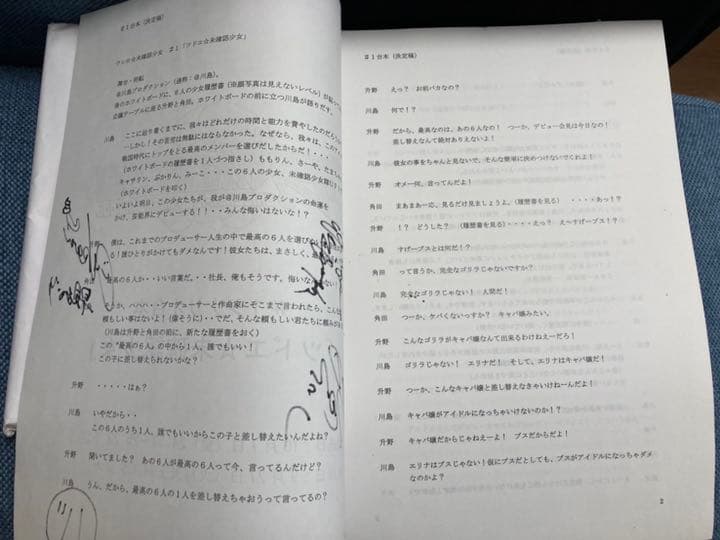 #1台本(決定稿)
ウレロ☆未確認少女 #1「ウドエ☆未確認少女」
舞台・明転
@川島プロダクション(通称:@川島)。
後のホワイトボードに、6人の少女履歴書(※顔写真は見えないレベル)が
会議テーブルに座る升野と角田。ホワイトボードの前に立つ川島が語りだす。
川島 ここに辿り着くまでに、我々はどれだけの時間と能力を費やしたのだろう
しかし!その苦労は無駄にはならなかった。なぜなら、我々は、このアイ
戦国時代にトップをとる最高のメンバーを選びだしたからだ!・・・
(ホワイトボードの履歴書を1人づつ指さし)ももりん、さーや、たまし
キャサリン、ぷかりん、みーこ・・・この6人の少女、未確認少女隊
(ホワイトボードを叩く)
いよいよ明日、この少女たちが、我が@川島プロダクションの命運を
かけ、芸能界にデビューする!!・・みんな悔いはないな!?
僕は、これまでのプロデューサー人生の中で最高の6人を選び
る!誰ひとりがかけてもダメなんです!彼女たちは、まさしく、
最高の6人か・・いい言葉だ。・・社長、俺もそうです。悔いな
か、ハハハ・・プロデューサーと作曲家にそこまで言われたら、こん
頼もしい事はないよ!(偉そうに)・・でだ、そんな頼もしい君たちに頼み
(川島は升野と角田の前に、新たな履歴書をおく)
この“最高の6人”の中から1人、誰でもいい!
この子に差し替えられないかな?
升野 ・・・・・はぁ?
川島 いやだから・・
この6人のうち1人、誰でもいいからこの子と差し替えたいんだよね?
升野 聞いてました? あの6人が最高の6人って今、言ってるんだけど?
川島 うん、だから、最高の6人の1人を差し替えちゃおうって言ってるの?
#1台本(決定稿)
升野 えっ? お前バカなの?
川島 何で!?
升野 だから、最高なのは、あの6人なの! つーか、デビュー会見は今日なの!
差し替えなんて絶対ありえないよ!
川島 彼女の事をちゃんと見ないで、そんな簡単に決めつけないでくれよ!
升野 オメー何、言ってんだよ!
角田 まあまあ一応、見るだけ見ましょうよ。(履歴書を見る) ・・・・あっ!?
升野 !? どうした? (履歴書を見る)・・・・えっ? えーすげーブス!?
川島 すげーブスとは何だ!?
角田 って言うか、完全なゴリラじゃないですか?
川島 完全なゴリラじゃない! 人間だ!
角田 つーか、ケバくないっすか? キャバ嬢みたい。
升野 こんなゴリラがキャバ嬢なんて出来るわけねえーだろ!
川島 ゴリラじゃない! エリナだ! そして、エリナはキャバ嬢だ!
升野 つーか、こんなキャバ嬢と差し替えなきゃいけねーんだよ!
川島 キャバ嬢がアイドルになっちゃいけないのか!?
升野 キャバ嬢だからじゃねえーよ! ブスだからだよ!
川島 エリナはブスじゃない!仮にブスだとしても、ブスがアイドルになっちゃダメ
なのかよ?
2